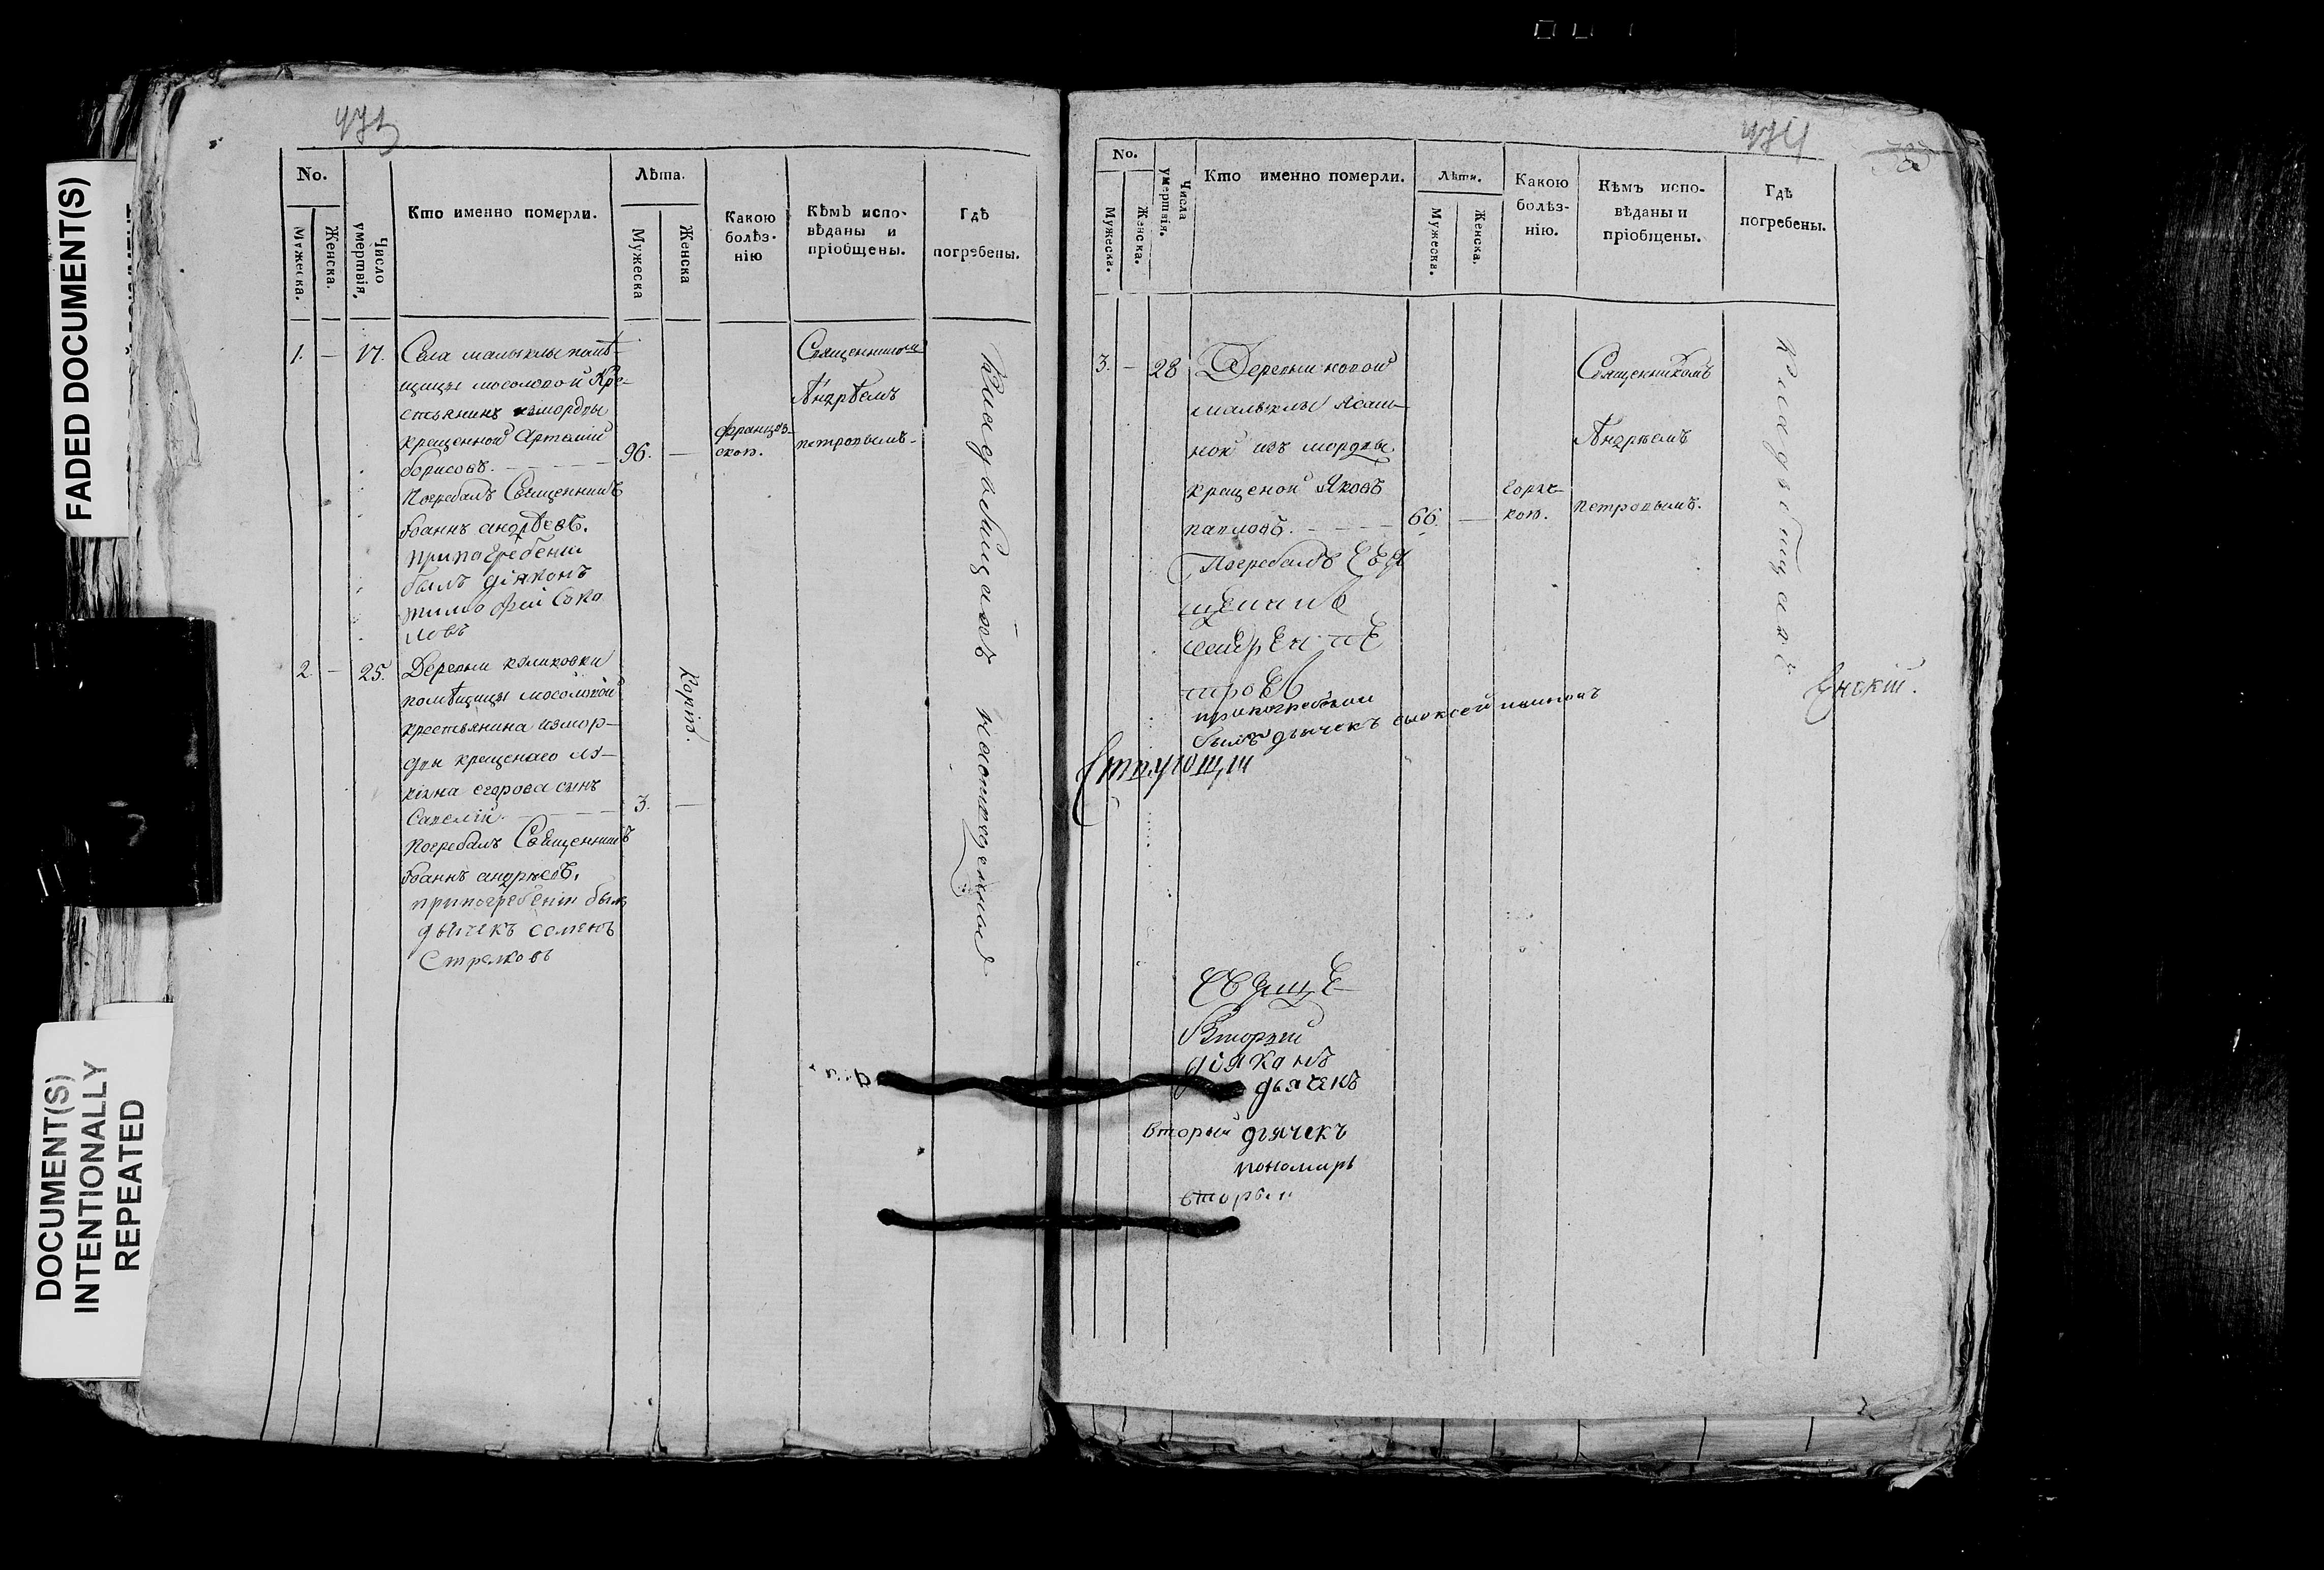 FADED DOCUMENT(S)
DOCUMENT(S)
INTENTIONALLY
REPEATED
473
No.
Мужеска.
Женска.
Число умертвія.
Кто именно померли.
Лѣта.
Мужеска
Женска
Какою
болѣз-
нію
Кѣмъ испо-
вѣданы и
пріобщены.
Гдѣ
погребены.
1. — 17. Села малыклы помѣ-
щицы мосоловой Кре-
стьянинъ измордвы
крещенной Артемій
борисовъ. — 96. —
Погребалъ Священникъ
Иоаннъ андрѣевъ.
припогребении
былъ діяконъ
тимофей Соко
ловъ
францоз-
скою.
Священникомъ
Андрѣемъ
петровымъ.
2. — 25. Деревни куликовки
помѣщицы мосоловой
крестьянина измор-
двы крещенаго
егорова сынъ
Савелій — 3. —
погребалъ Священникъ
Иоаннъ андрѣевъ.
припогребеніи былъ
дьячекъ семенъ
Стрелковъ
Корію.
Кладбищахъ наотведенных
474
No.
Мужеска.
Женска.
Числа умертвія.
Кто именно померли.
Лѣта.
Мужеска.
Женска.
Какою
болѣз-
нію.
Кѣмъ испо-
вѣданы и
пріобщены.
Гдѣ
погребены.
3. — 28 Деревни новой
малыклы Ясаш-
ной изъ мордвы
крещеной Яковъ
павловъ. — 66. —
Погребалъ Свя
щеникъ
припогребении
былъ дьячекъ алексей
горяч-
кою.
Священникомъ
Андрѣемъ
петровымъ.
кладбищахъ
Свяще
Вторый
діяканъ
дьячекъ
вторый дьячекъ
пономарь
вторый